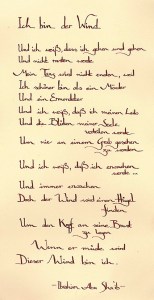 Ich bin der Wind
Und ich weiß, dass ich gehen und gehen
Und nicht rasten werde
Mein Tanz wird nicht enden, weil
Ich schöner bin als ein Minder
Und ein Emordeter
Und ich weiß, daß ich meinen Leib
Und die Blüten meiner Seele
verlieren werde
Um sie an einem Grab gesehen
zu werden
Und ich weiß, daß ich erwachen
werde ...
Und immer erwachen
Daß der Wind wird einen Hügel
finden
Um den Kopf an seine Brust
zu legen
Wenn er müde wird
Dieser Wind bin ich.
- Ibrahim Abu